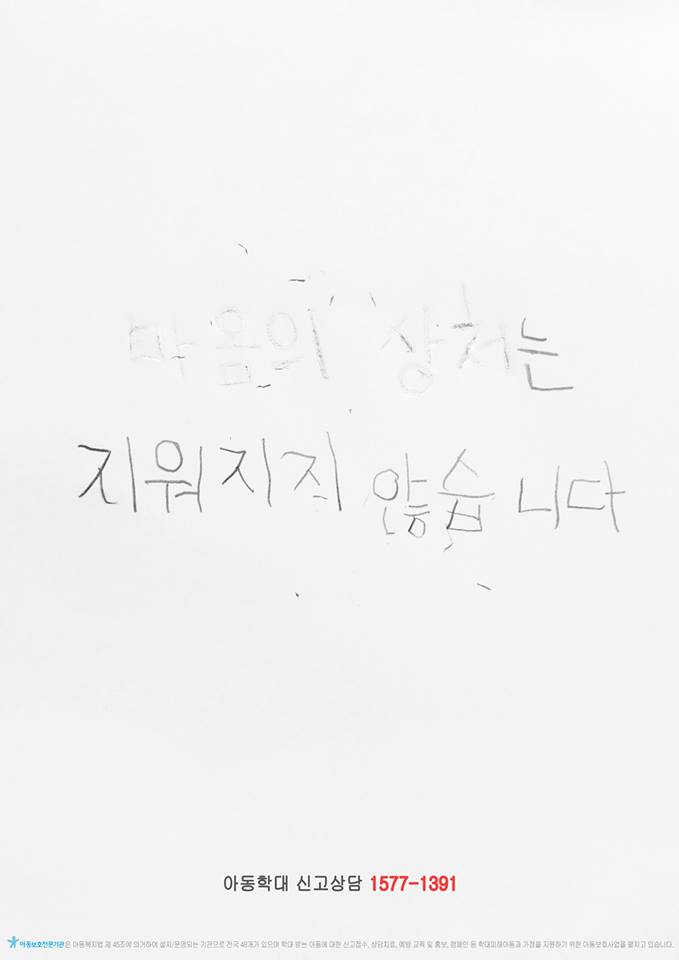 마음의 상처는
지워지지 않습니다
아동학대 신고상담 1577-1391
아동보호전문기관은 아동복지법 제 45조에 의거하여 설치/운영되는 기관으로 전국 48개가 있으며 학대 받는 아동에 대한 신고접수, 상담치료, 예방 교육 및 홍보, 캠페인 등 학대피해아동과 가정을 지원하기 위한 아동보호사업을 펼치고 있습니다.